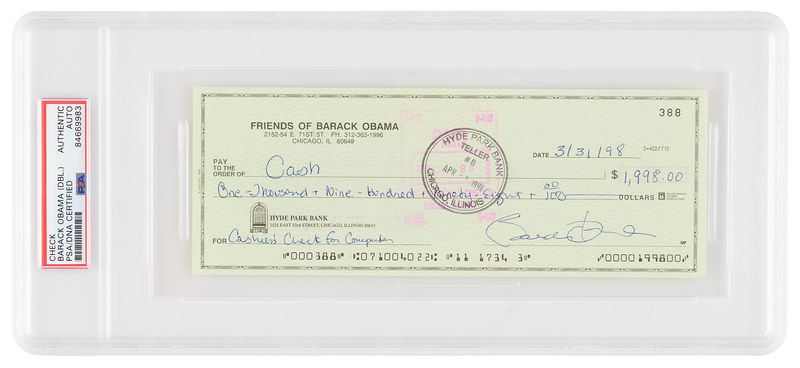 CHECK
BARACK OBAMA (DBL.)
PSA/DNA CERTIFIED
PSA
AUTHENTIC
AUTO
84669983
388
FRIENDS OF BARACK OBAMA
2152-54 E. 71ST ST. PH. 312-363-1996
CHICAGO, IL 60649
DATE 3/31/98
2-402/710
PAY
TO THE
ORDER OF Cash $ 1,998.00
One Thousand + Nine-Hundred + Ninety-Eight + 00/100 DOLLARS
HYDE PARK BANK
TELLER
#8
APR
CHICAGO, ILLINOIS
HYDE PARK BANK
1525 EAST 53rd STREET, CHICAGO, ILLINOIS 60615
FOR Cashier's Check for Computer
Barack Obama
MP
⑈000388⑈ ⑆071004022⑆ ⑈11 1734 3⑈ ⑇0000199800⑇